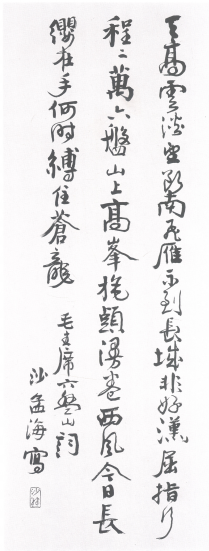 天高雲淡望斷南飛雁不到長城非好漢屈指行
程二萬六盤山上高峯旄頭漫卷西風今日長
纓在手何時縛住蒼龍
毛主席六盤山詞
沙孟海寫